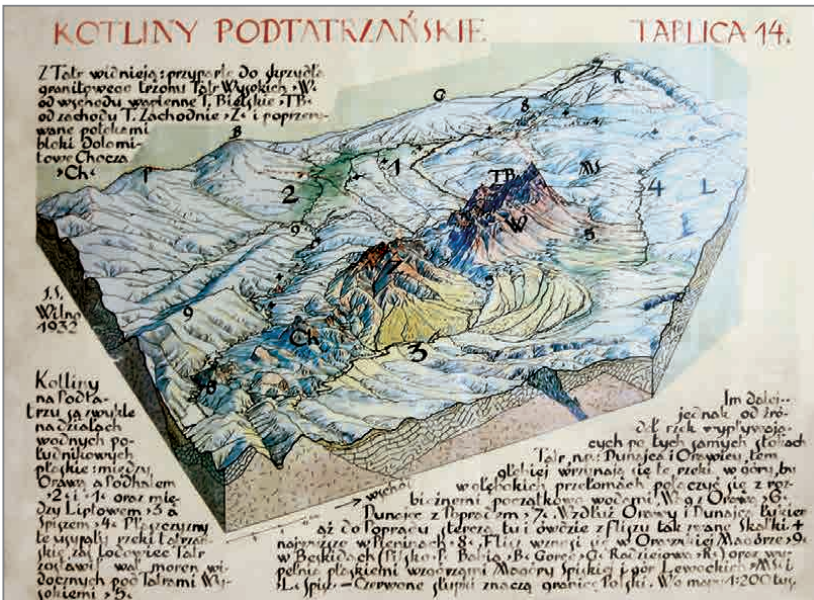 KOTLINY PODTATRZAŃSKIE
TABLICA 14.
Z Tatr widnieją: przyparte do skrzydła
granitowego trzonu Tatr Wysokich ›W‹
od wschodu wapienne T. Bielskie ›TB‹
od zachodu T. Zachodnie ›Z‹ i poprzery-
wane potokami
bloki dolomi-
towe Chocza
›Ch‹
R
G
8
B
P
1
2
TB
MS
4
L
W
9
5
5
9
Ch
3
J.S.
Wilno
1932
Kotliny
na Podta-
trzu są zwykle
na działach
wodnych po-
łudnikowych
płaskie: między
Orawą a Podhalem
›2‹ i ›1‹ oraz mię-
dzy Liptowem ›3 a
Spiszem ›4‹
rzeki tatrzań-
skie zaś lodowiec Tatr
zostawił wał moren wi-
docznych pod Tatrami Wy-
sokiemi ›5‹
→ wschód
Im dalej
jednak od źró-
deł rzek wypływają-
cych po tych samych stokach
Tatr, np: Dunajca i Orawicy, tem
głębiej wrzynają się te rzeki w góry, by
w głębokich przełomach połączyć się z roz-
bieżnemi początkowo wodami
Dunajec z Popradem ›7‹. Wzdłuż Orawy i Dunajca
aż do Popradu sterczą tu i ówdzie z fliszu tak zwane Skałki +
najwyższe w Pieninach ›8‹. Flisz wznosi się w Orawskiej Magórze ›9‹
w Beskidach (Pilsko ›P‹ Babia ›B‹ Gorce ›G‹ Radziejowa ›R‹) oraz wy-
pełnia płaskiemi wzgórzami Magóry Spiskiej i gór Lewockich ›MS‹ i
›L‹ Spisz – Czerwone słupki znaczą granicę Polski. 1:200 tys.